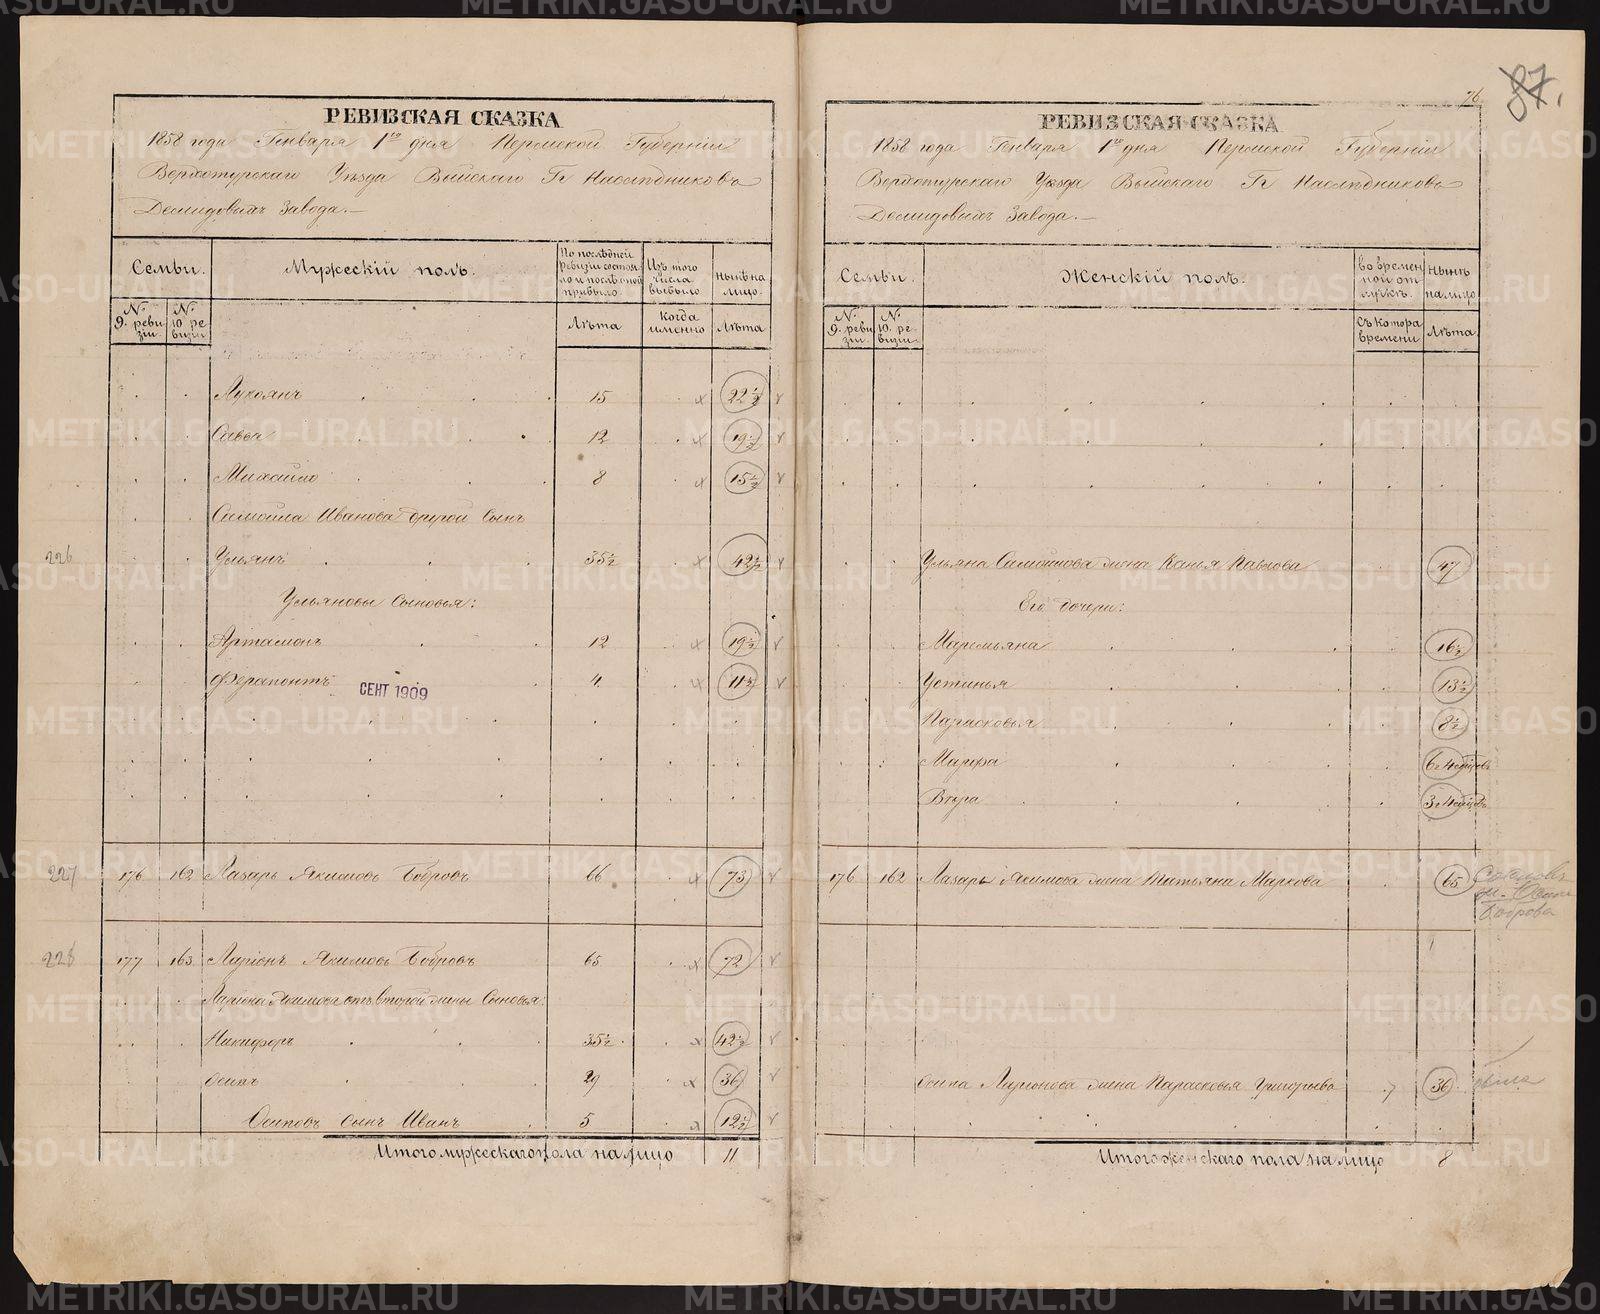 РЕВИЗСКАЯ СКАЗКА
1858 года Генваря 1го дня Пермской Губернiи
Верхотурскаго Уѣзда Выйскаго Гг Наслѣдниковъ
Демидовыхъ Завода.—
Семьи.
№ 9. ревизiи
№ 10. ревизiи
Мужескiй полъ.
По послѣдней ревизiи состояло и послѣ оной прибыло
Лѣта
Изъ того числа выбыло
Когда именно
Нынѣ на лицо.
Лѣта
Лукоянъ 15 22½
Савва 12 19½
Михайло 8 15½
Самойла Иванова другой сынъ
226 Ульянъ 35½ 42½
Ульяновы сыновья:
Артамонъ 12 19½
Ферапонтъ 4 11½
СЕНТ 1909
227 176 162 Лазарь Якимовъ Бобровъ 66 73
228 177 163 Ларiонъ Якимовъ Бобровъ 65 72
Ларiона Якимова отъ второй жены сыновья:
Никифоръ 35½ 42½
Осипъ 29 36
Осиповъ сынъ Иванъ 5 12½
Итого мужескаго пола на лицо 11
76
87.
РЕВИЗСКАЯ СКАЗКА
1858 года Генваря 1го дня Пермской Губернiи
Верхотурскаго Уѣзда Выйскаго Гг Наслѣдниковъ
Демидовыхъ Завода.—
Семьи.
№ 9. ревизiи
№ 10. ревизiи
Женскiй полъ.
Во временной отлучкѣ.
Съ котора времени
Нынѣ на лицо
Лѣта
Ульяна Самойлова жена Павлова 47
Его дочери:
Маремьяна 16½
Устинья 13½
Парасковья 8½
Марфа 6
Вѣра 3
176 162 Лазаря Якимова жена Татьяна Маркова 65
Боброва
Осипа Ларiонова жена Парасковья Григорьева 36
Итого женскаго пола на лицо 8
METRIKI.GASO-URAL.RU